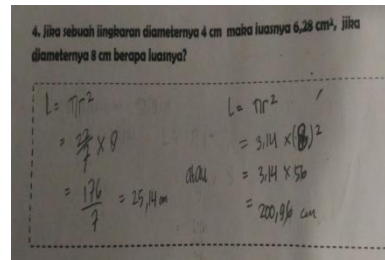 4. Jika sebuah lingkaran diameternya 4 cm maka luasnya 6,28 cm², jika
diameternya 8 cm berapa luasnya?
L = πr²
= 22/7 × 8
= 176/7 = 25,14 cm
atau
L = πr²
= 3,14 × (8)²
= 3,14 × 56
= 200,96 cm